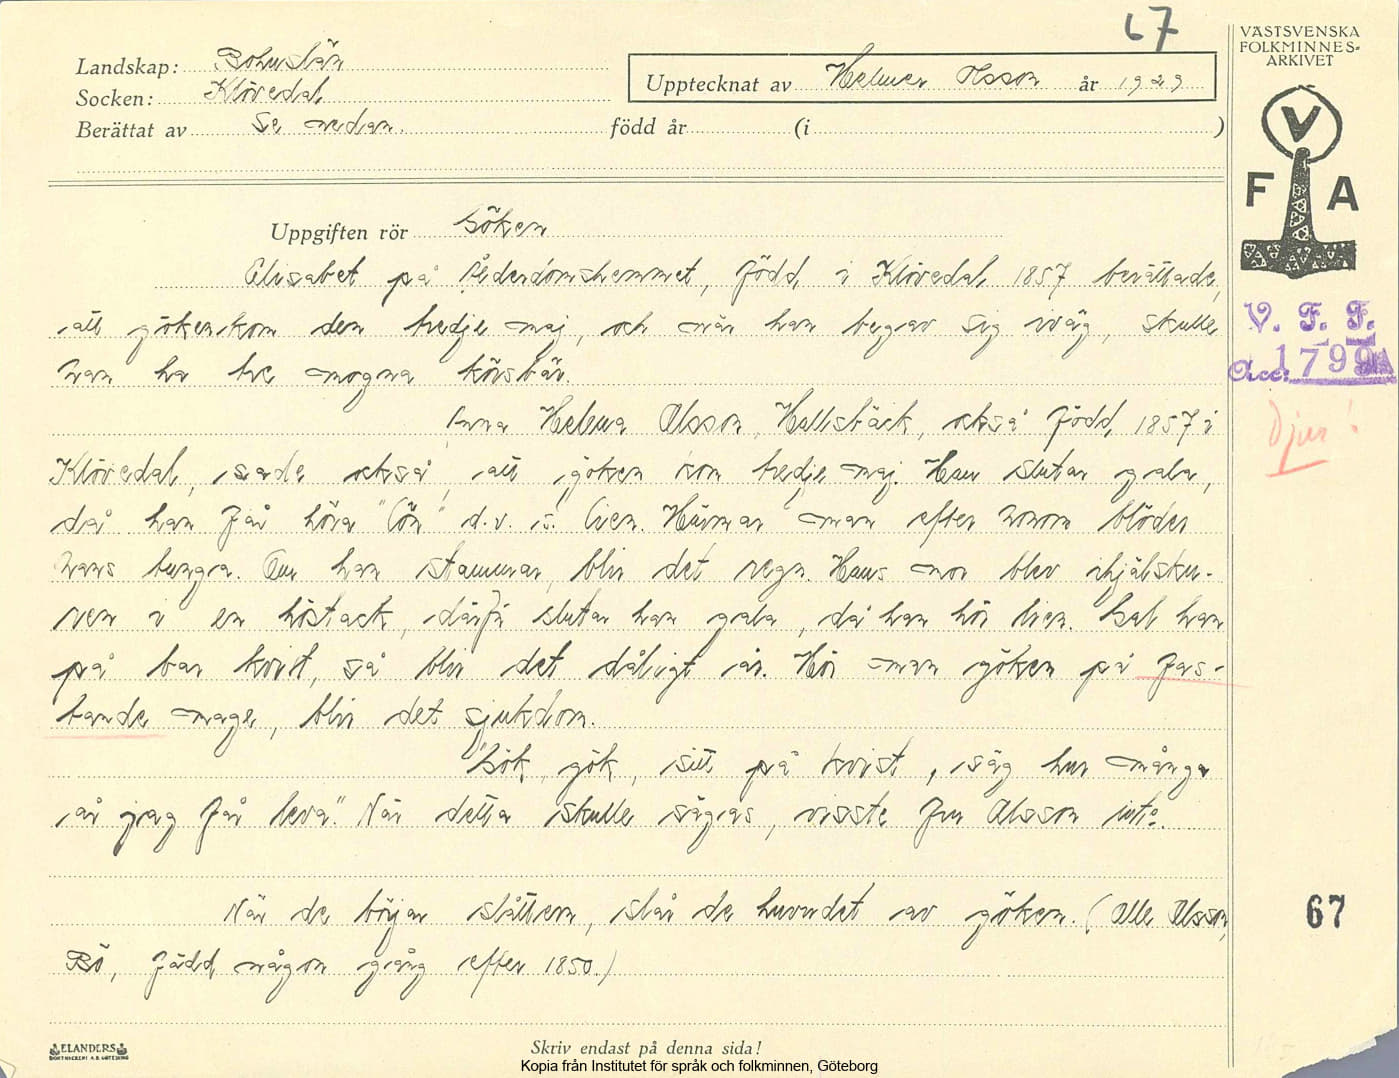 67
VÄSTSVENSKA
FOLKMINNES-
ARKIVET
Landskap: Bohuslän
Socken: Klövedal
Upptecknat av Helmer Olsson år 1929
Berättat av Se nedan. född år (i )
V
F A
Uppgiften rör Göken
Elisabet på Ålderdomshemmet, född i Klövedal 1857 berättade,
att göken kom den tredje maj, och när han begav sig iväg, skulle
han ha tre mogna körsbär.
Anna Helena Olsson, Hallsbäck, också född 1857 i
Klövedal, sade också, att göken kom tredje maj. Han slutar gala,
då han får höra "Lön" d.v.s. lien. Härmar man efter honom blöder
hans tunga. Om han stammar, blir det regn. Hans mor blev ihjälsku-
ren i en höstack, därför slutar han gala, då han hör lien. Gal han
på bar kvist, så blir det dåligt år. Hör man göken på fas-
tande mage, blir det sjukdom.
"Gök, gök, sitt på kvist, säg hur många
år jag får leva". När detta skulle sägas, visste fru Olsson inte.
När de börjar slåttern, slår de huvudet av göken. (Olle Olsson,
Bö, född någon gång efter 1850.)
V. F. F.
Acc: 1799
Djur!
67
ELANDERS
BOKTRYCKERI A.B. GÖTEBORG
Skriv endast på denna sida!
Kopia från Institutet för språk och folkminnen, Göteborg